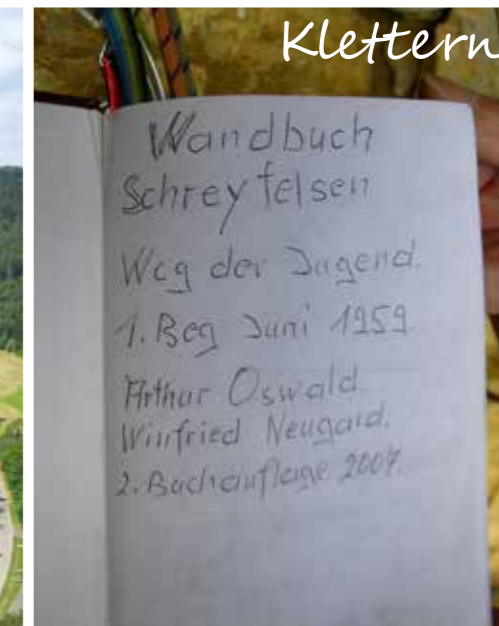 Klettern
Wandbuch
Schreyfelsen
Weg der Jugend.
1. Beg Juni 1959
Arthur Oswald
Winfried Neugard.
2. Buchauflage 2007.